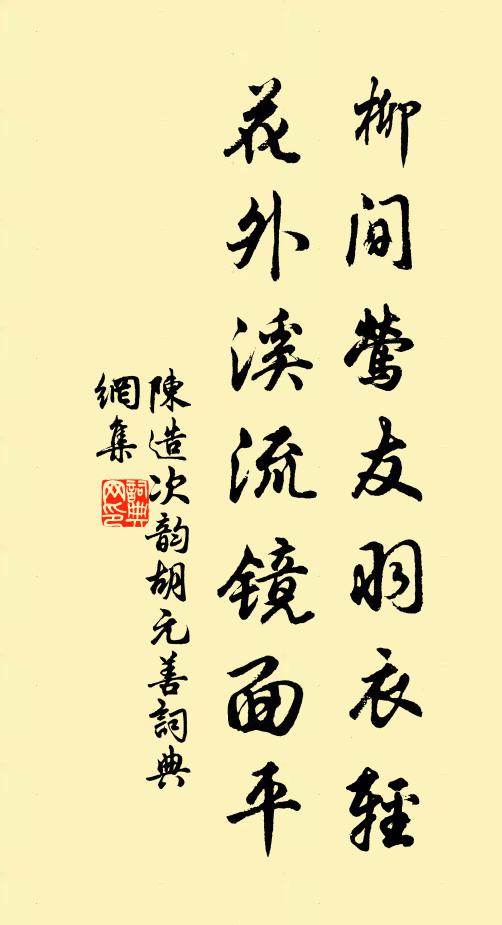 柳间莺友羽衣轻
花外溪流镜面平
陳造次韵胡元善詞典
網集
詞典網印